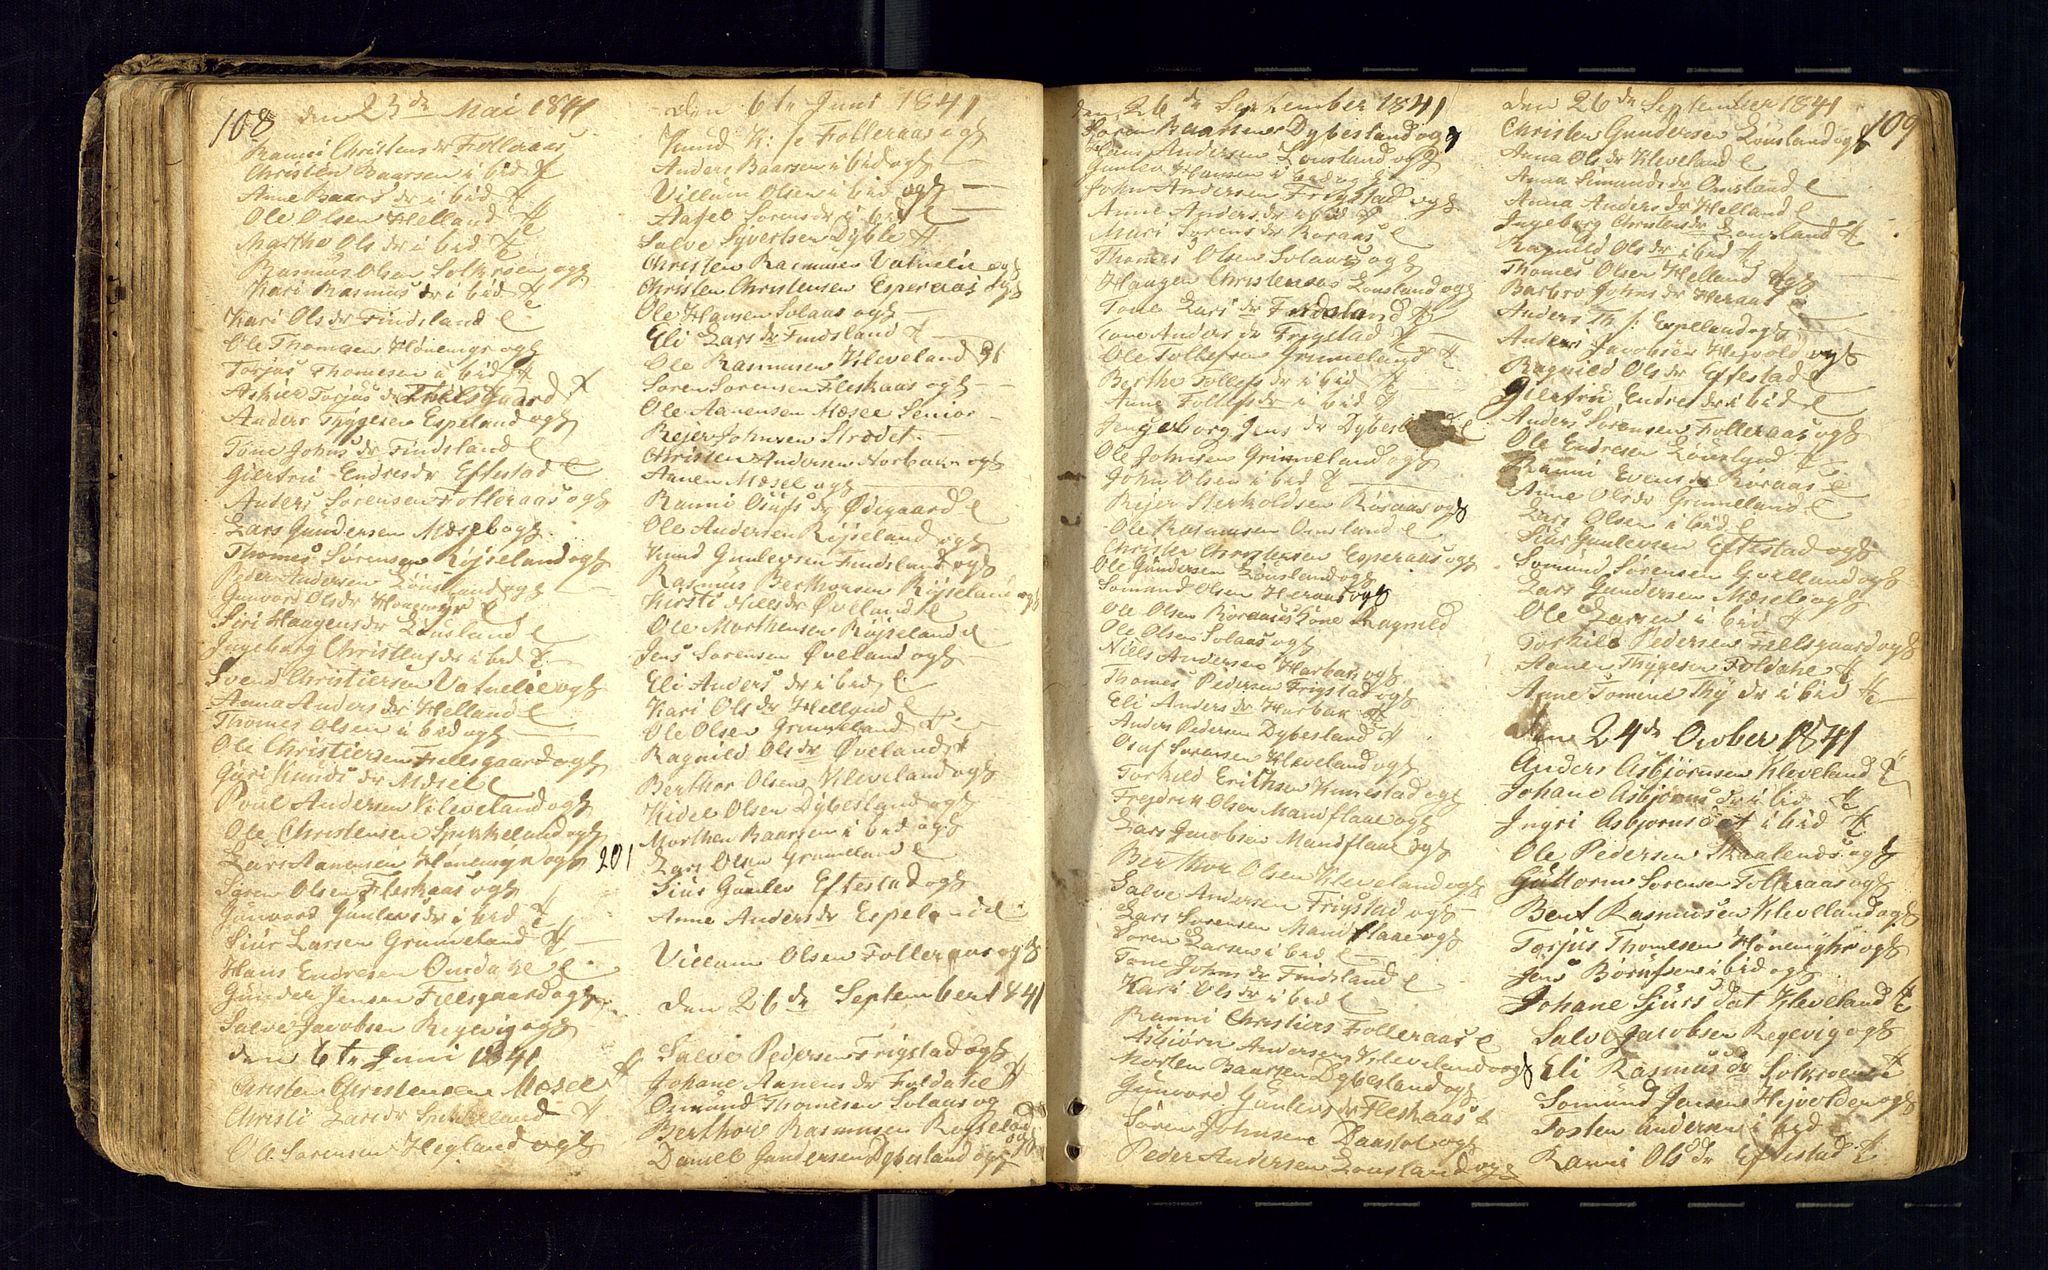 108 den 23de Mai 1841
Ranni Christens dr Folleraas
Christen Baarsen i bid
Ane Baars dr i bid
Ole Olsen Helland
Marthe Ols dr i bid
Rasmus Olsen
Kari Rasmus dr i bid
Kari Ols dr Findsland
Ole Thomsen Hønemyr og
Torjus Thomesen i bid
Torjus dr Fielsgaard
Anders Thygesen Espeland og
Tone Johns dr Findsland
Giertru Endres dr Eftestad
Anders Sørensen Folleraas og
Lars Gundersen Mæsel og
Thomes Sørensen Røiseland og
Peder Andersen Lønsland og
Gunvord Ols dr Hønemyr
Siri Haagens dr Lønsland
Ingeborg Christens dr i bed
Svend Christiersen Vatnelie og
Anna Anders dr Helland
Thomes Olsen i bid og
Ole Christiersen Fielsgaard og
Guri Knuds dr Mæsel
Poul Andersen Kleveland og
Ole Christensen Spikkeland og
Lars Aanensen Hønemyr og
Søren Olsen Fleskaas og
Gunvord Gunlevs dr i bid
Siur Larsen Grimeland
Hans Endresen
Gunder Jensen Fielsgaard og
Salve Jacobsen Regevig og
den 6te Juni 1841
Christen Christensen Mæsel
Christi Lars dr Spikkeland
Ole Sørensen Hegland og
den 6te Juni 1841
Knud Folleraas og
Anders Baarsen i bid og
Villum Olsen i bid og
Sørens dr i bid
Salve Syvertsen Dyble
Christen Rasmusen Vatnelie og
Christen Christensen Esperaas og
Ole Hansen Solaas og
Eli Lars dr Findsland
Ole Rasmusen Kleveland
Søren Sørensen Fleskaas og
Ole Aanensen Mæsel Senior
Reier Johnsen Strædet
Christen Andersen og
Aanen Mæsel og
Ranni Osufs dr Ødegaard
Ole Andersen Røiseland og
Knud Gunlevsen Findsland og
Rasmus Berthorsen Røiseland og
Kirsti Niels dr Øveland
Ole Morthensen Røiseland
Jens Sørensen Øveland og
Eli Anders dr i bid
Kari Ols dr Helland
Ole Olsen Grimeland
Ragnild Ols dr Øveland
Berthor Olsen Kleveland og
Kidel Olsen Dybesland og
Morthen Baarsen i bid og
201 Lars Olsen Grimeland
Siur Gunlev Eftestad og
Anne Anders dr Espeland
Villum Olsen Folleraas og
den 26de September 1841
Salve Pedersen Frigstad og
Johane Aanens dr Foldahe
Osmund Thomesen Solaas og
Berthor Rasmusen Røiseland og
Daniel Gundersen Dybesland og
den 26de September 1841
Søren Baarsen Dybesland og
Hans Andersen Lønsland og
Gunlev Hansen i bid og
John Andersen Frigstad og
Anne Anders dr i bid
Mari Sørens dr Roraas
Thomes Olsen Solaas og
Haagen Christensen Lønsland og
Tone Lars dr Findsland
Anders dr Frigstad
Ole Tollefsen Grimeland
Berthe Tollefs dr i bid
Anne Tollefs dr i bid
Jengeborg Jens dr Dybesland
Ole Johnsen Grimeland og
John Olsen i bid
Reier Sterkoldsen Røsaas og
Ole Rasmusen Omsland
Christen Christensen Esperaas og
Ole Gundersen Lønsland og
Somund Olsen Heraas og
Ole Olsen Roraas Kone Ragnild
Ole Olsen Solaas og
Niels Andersen Harbak og
Thomes Pedersen Frigstad og
Eli Anders dr Harbak
Anders Pedersen Dybesland
Osuf Sørensen Kleveland og
Torkild Erichsen Kimestad og
Fredrik Olsen Mandflaae og
Lars Jacobsen Mandflaae og
Berthor Olsen Kleveland og
Salve Andersen Frigstad og
Lars Sørensen Mandflaae og
Søren Larsen i bid
Tone Johns dr Findsland
Kari Ols dr i bid
Ranni Christiers Folleraas
Asbiørn Andersen Kleveland og
Morten Baarsen Dybesland og
Gunvord Gunlevs dr Fleskaas
Søren Johnsen Daastol og
Peder Andersen Lønsland og
den 26de September 1841 109
Christen Gundersen Lønsland og
Anna Ols dr Kleveland
Anna Simunds dr Omsland
Anna Anders dr Helland
Ingeborg Christens dr Lønsland
Ragnild Ols dr i bid
Thomes Olsen Helland og
Barbro Johns dr Heraas
Anders Th Espeland og
Anders Jacobsen Heivold og
Ragnild Ols dr Eftestad
Giertru Endres dr i bid
Anders Sørensen Folleraas og
Ole Endresen Lønsland
Ranni Evens dr Roraas
Anne Ols dr Grimeland
Lars Olsen i bid
Siur Gunlevsen Eftestad og
Somund Sørensen Qvelland og
Lars Gundersen Mæsel og
Ole Larsen i bid
Torkild Pedersen Fielsgaard og
Aanen Thygesen Foldahe
Anne Tomene Thy dr i bid
den 24de Ocober 1841
Anders Asbjørnsen Kleveland
Johane Asbjørns dr i bid
Ingri Asbjørns dat i bid
Ole Pedersen Skaalends og
Guttorm Sørensen Folleraas og
Bent Rasmusen Klevelland og
Torjus Thomesen Hønemyhr og
Jens Børufsen i bid og
Johane Siurs dat Kleveland
Salve Jacobsen Regevig og
Eli Rasmus dr
Somund Jensen Heivolden og
Tosten Andersen i bid
Ranni Ols dr Eftestad